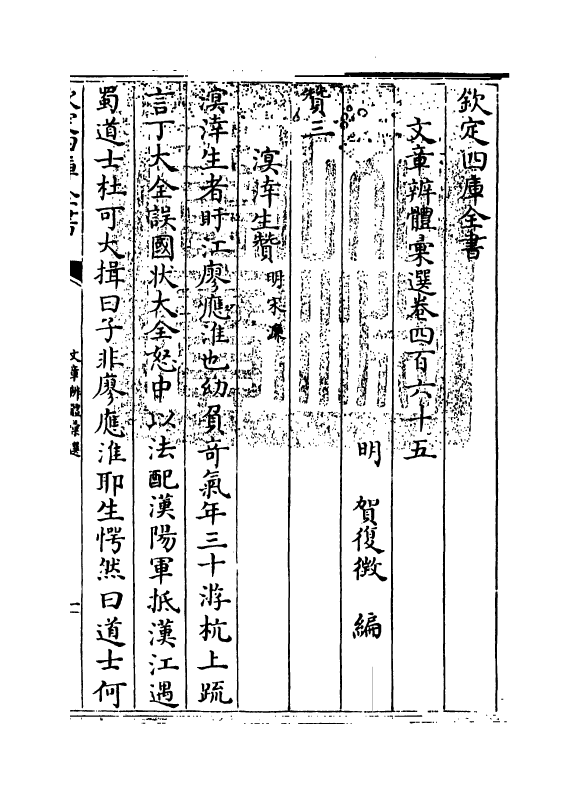 欽定四庫全書
文章辨體彙選卷四百六十五
明 賀復徵 編
贊三
溟涬生贊 明宋濂
溟涬生者盱江廖應淮也幼負奇氣年三十游杭上疏
言丁大全誤國狀大全怒中以法配漢陽軍抵漢江遇
蜀道士杜可大揖曰子非廖應淮耶生愕然曰道士何
欽定四庫全書
文章辨體彙選
一